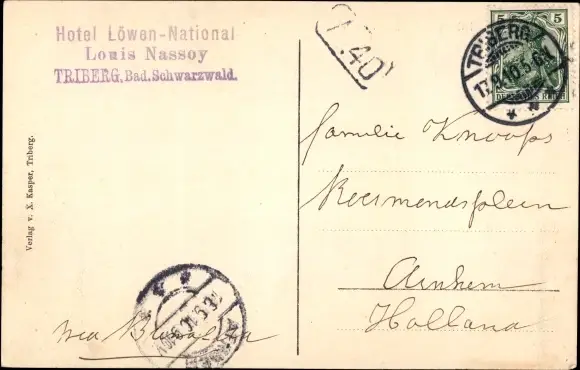 Hotel Löwen-National
Louis Nassoy
TRIBERG, Bad. Schwarzwald.
7.40
5 5
DEUTSCHES REICH
TRIBERG
17.9.10.5-6N
Familie Knoops
Arnhem
Holland
via Brussel
Verlag v. X. Kasper, Triberg.